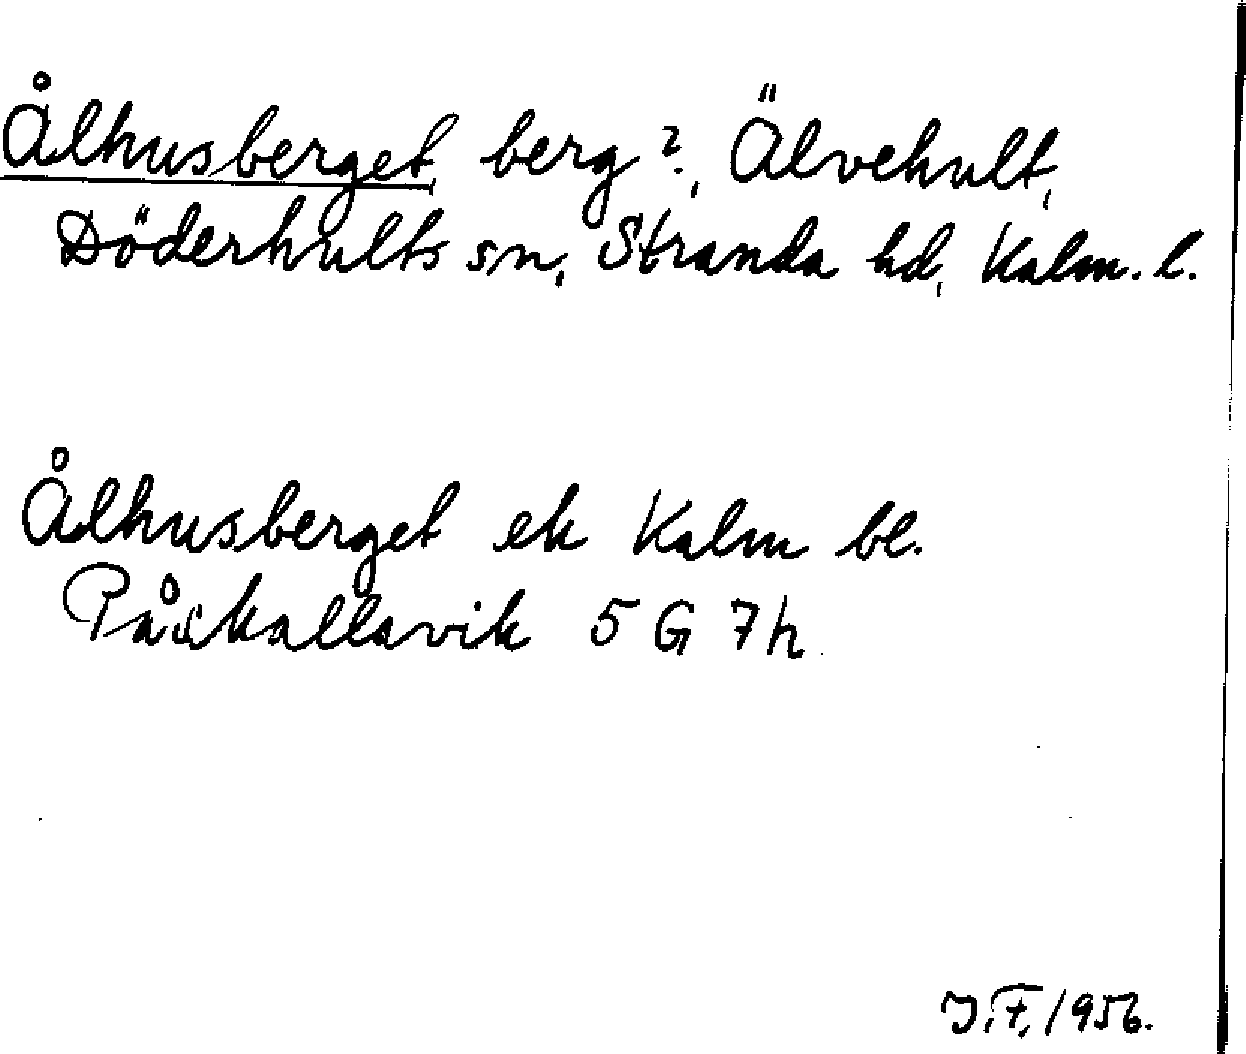 Ålhusberget, berg?, Älvehult,
Döderhults sn, Stranda hd, Kalm. l.
Ålhusberget ek Kalm bl.
Påskallavik 5 G 7h
J.F. 1956.